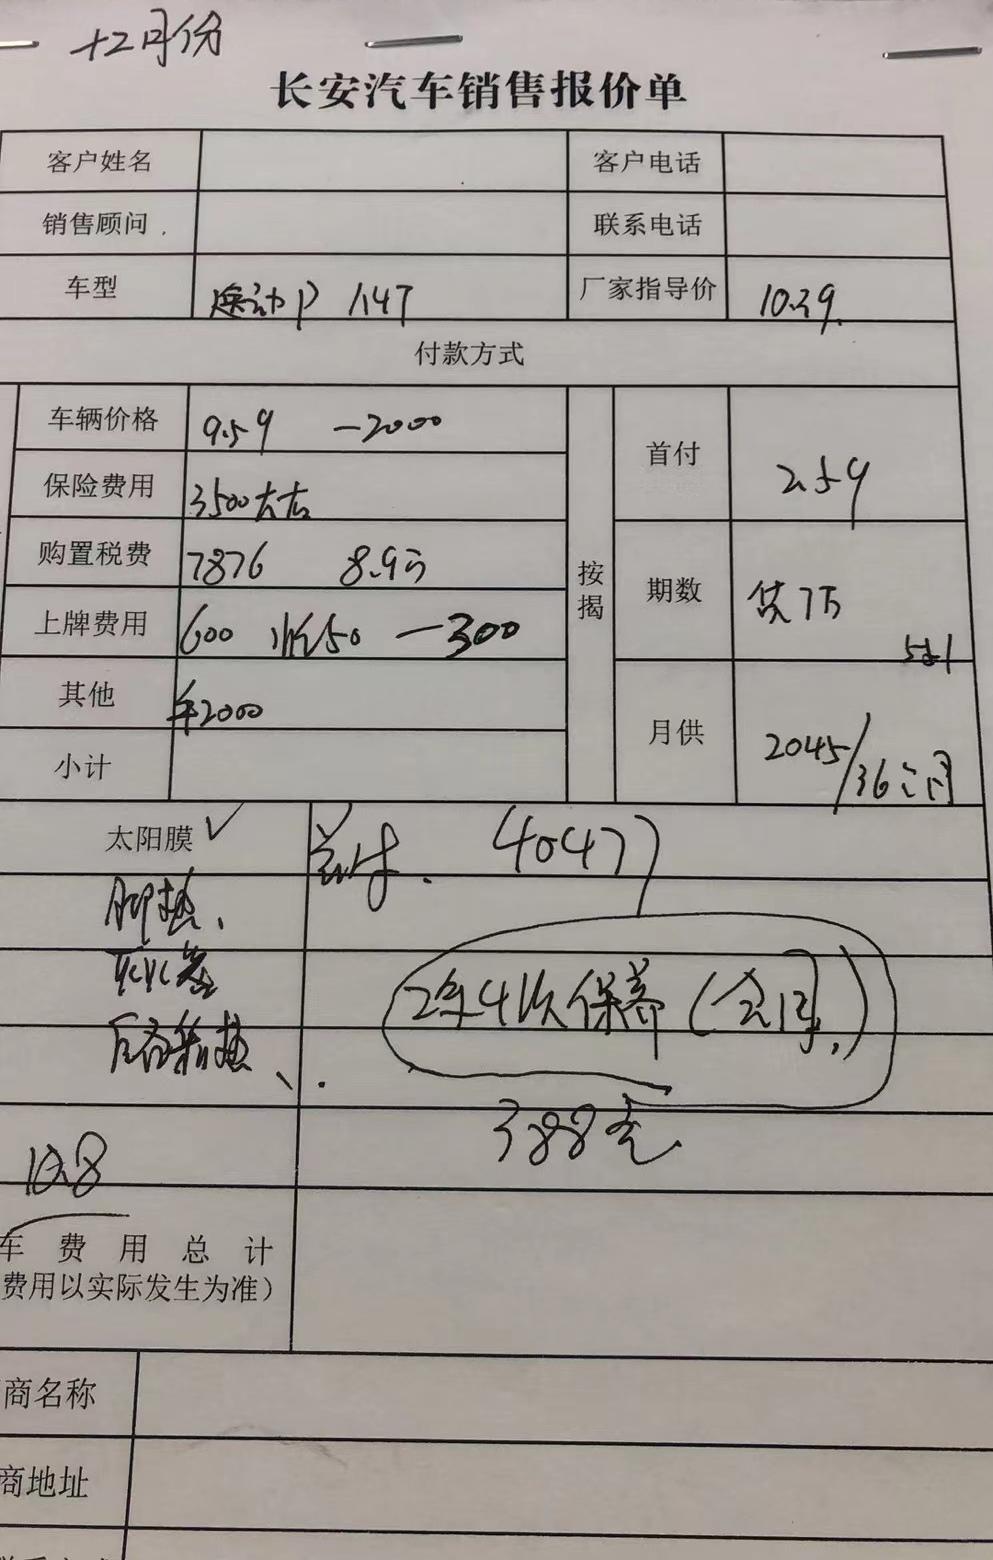 十2月份
长安汽车销售报价单
客户姓名 客户电话
销售顾问 联系电话
车型 逸动P 1.4T 厂家指导价 10.39
付款方式
车辆价格 9.59 -2000
首付 2.59
保险费用 3500左右
购置税费 7876 8.9万
按揭 期数 贷7万
上牌费用 600 -300
5年
其他 2000
月供 2045/36个月
小计
太阳膜 ✓ 首付. 40477
脚垫、
灭火器 2年4次保养(全国)
后备箱垫、
388元
10.8
车费用总计
费用以实际发生为准)
商名称
商地址